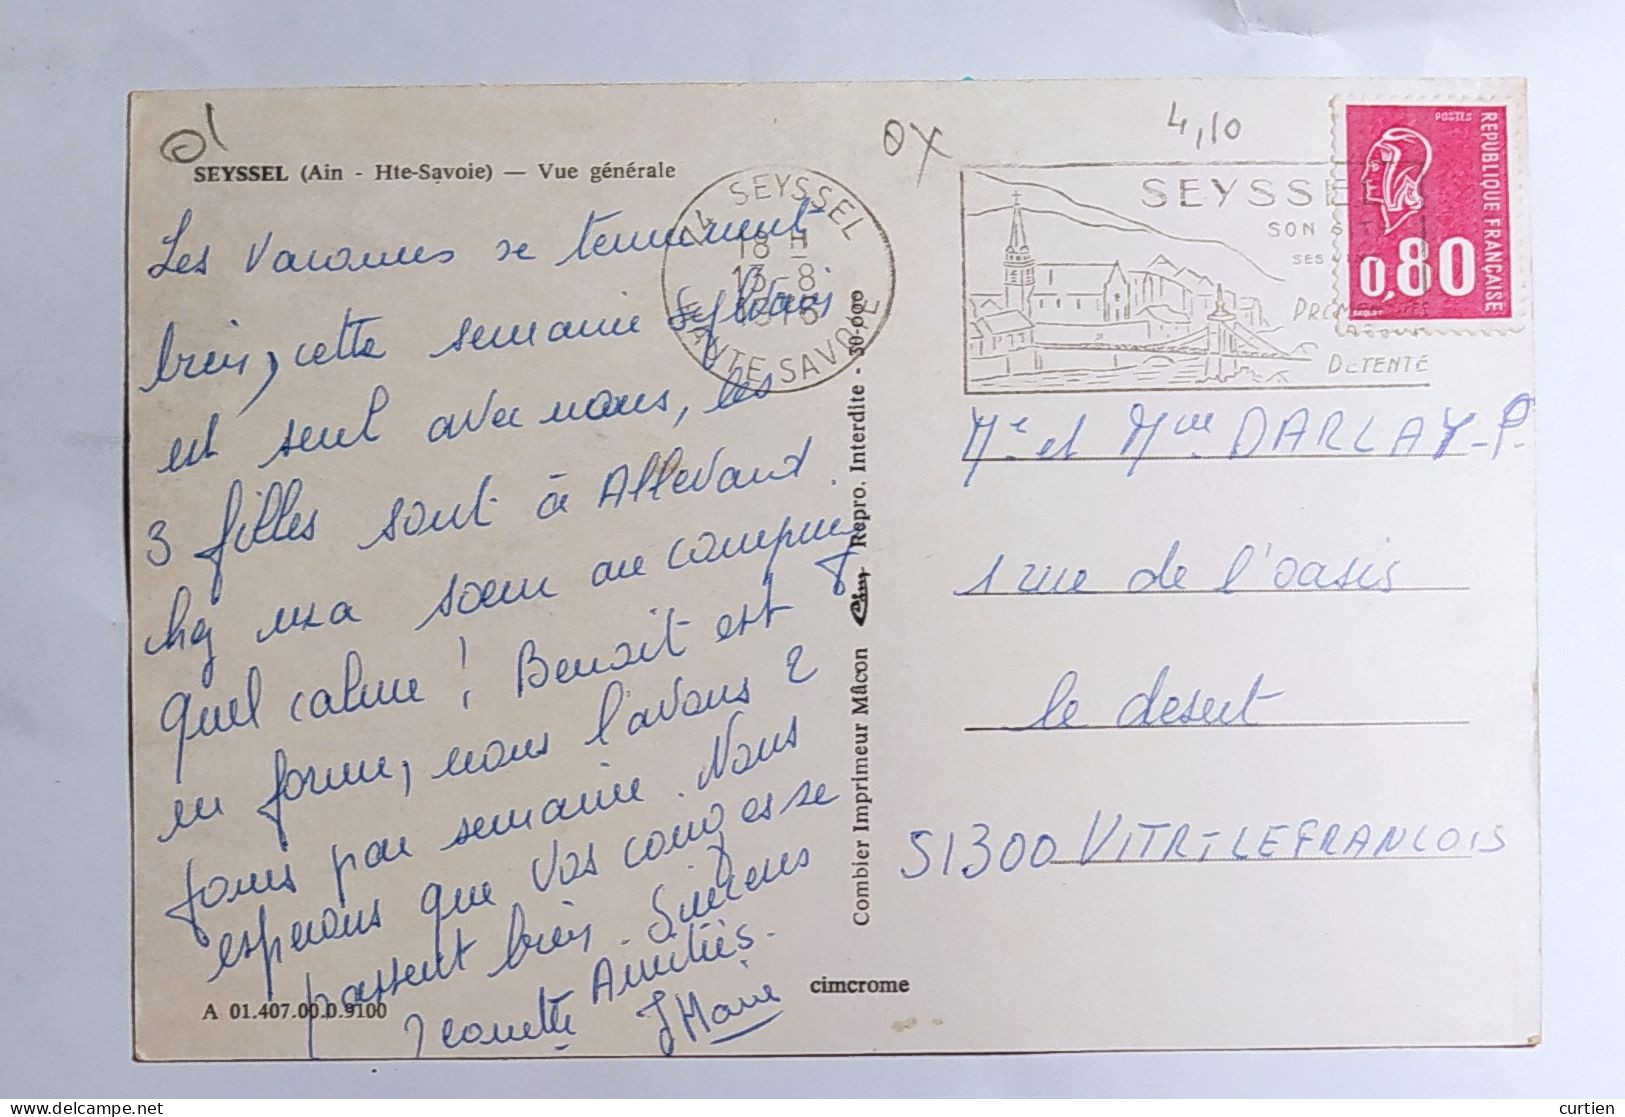 01
OX
4,10
SEYSSEL (Ain - Hte-Savoie) — Vue générale
Les vacances se terminent
bien, cette semaine Sylvain
est seul avec nous, les
3 filles sont à Allevard
chez ma sœur au camping
Quel calme ! Benoit est
en forme, nous l'avons 2
jours par semaine. Nous
esperons que vos congés se
passent bien. Sincères
Amitiés.
Jeanette JMarie
A 01.407.00.0.9100
cimcrome
Combier Imprimeur Mâcon Cim Repro. Interdite - 30-000
74 SEYSSEL
18 H
13-8
HAUTE SAVOIE
SEYSSEL
SON SITE
SES
PROMENADES
DETENTE
POSTES
REPUBLIQUE FRANÇAISE
0,80
BEQUET
Mr et Mme DARLAY-P.
1 rue de l'oasis
le desert
51300 VITRY-LE FRANCOIS
curtien